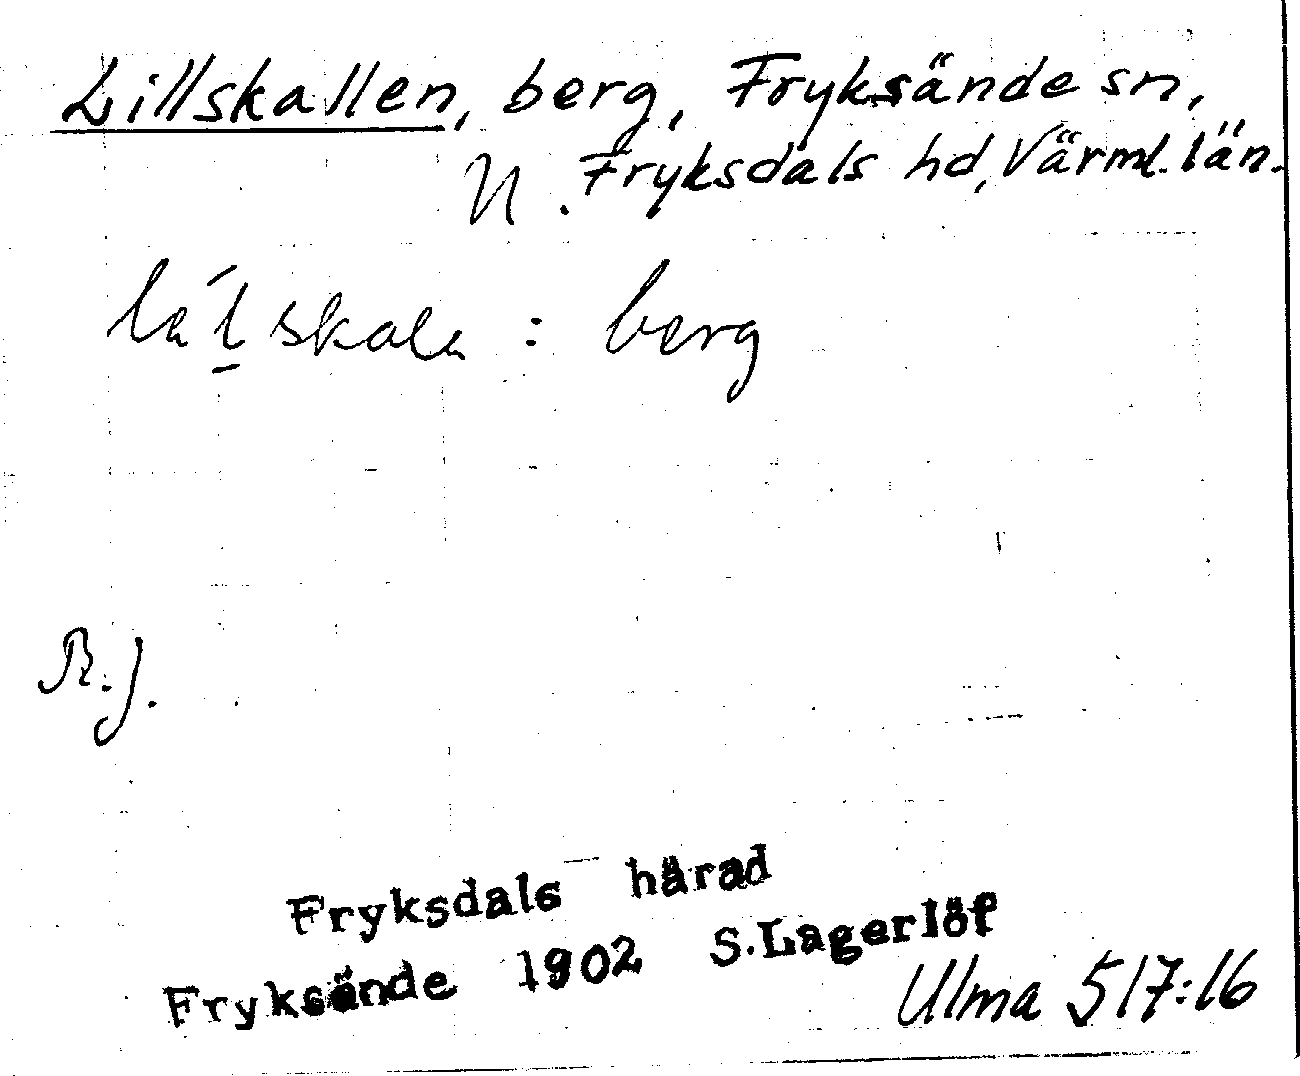 Lillskallen, berg, Fryksände sn,
N. Fryksdals hd, Värml. län.
: berg
R.J.
Fryksdals härad
Fryksände 1902 S. Lagerlöf
Ulma 517:16